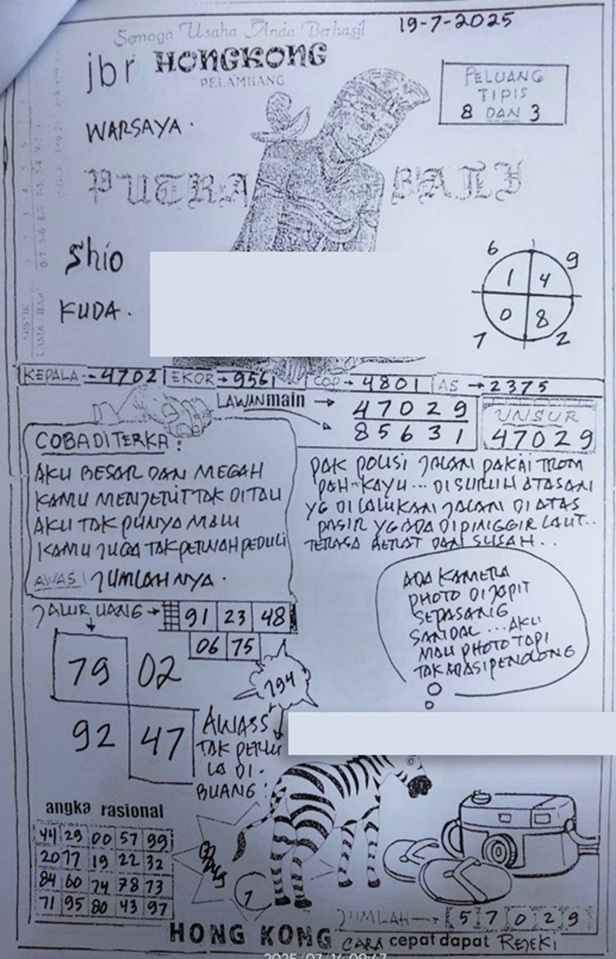 Semoga Usaha Anda Berhasil
19-7-2025
jbr HONGKONG
PELAMBANG
PELUANG
TIPIS
8 DAN 3
WARSAYA.
PUTRA BALI
Shio
KUDA.
6 9
1 4
0 8
7 2
KEPALA → 4702 EKOR → 9561 COP → 4801 AS → 2375
LAWAN main → 47029
85631
UNSUR
47029
COBA DITERKA:
AKU BESAR DAN MEGAH
KAMU MENJERIT TAK DITAU
AKU TAK PUNYA MALU
KAMU JUGA TAK PERNAH PEDULI
AWAS! JUMLAHNYA.
PAK POLISI JALAN PAKAI TROM
PAH-KAYU... DI SURUH ATASAN
YG DI LALUKAN JALAN DI ATAS
PASIR YG ADA DIPINGGIR LAUT..
TERASA BERAT DAN SUSAH...
ADA KAMERA
PHOTO DI JAPIT
SEPASANG
SANDAL... AKU
MAU PHOTO TAPI
TAK ADA SI PENOLONG
JALUR UANG → 91 23 48
06 75
79 02
92 47
194
AWASS
TAK PERLU
LA DI-
BUANG!
angka rasional
44 29 00 57 99
20 17 19 22 32
84 60 74 78 73
71 95 80 43 97
7
JUMLAH → 5 7 0 2 9
HONG KONG CARA cepat dapat REJEKI